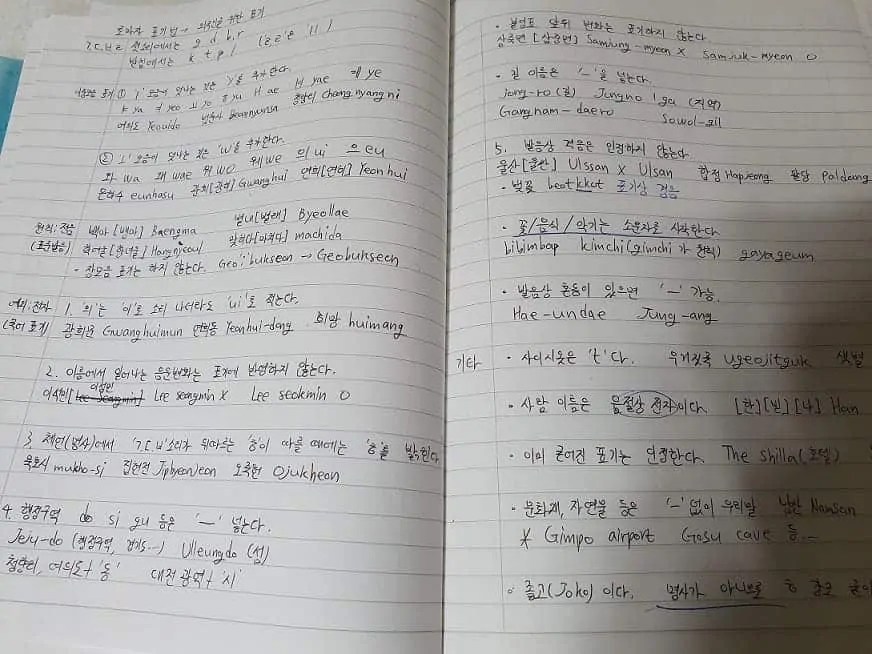 로마자 표기법 → 외국인을 위한 표기
ㄱ,ㄷ,ㅂ,ㄹ 첫소리에서는 g d b r
받침에서는 k t p l (ㄹㄹ은 ll)
① 'ㅣ'모음이 엮나는 것은 'y'를 추가한다.
ㅑ ya ㅕ yeo ㅛ yo ㅠ yu ㅐ ae ㅒ yae ㅖ ye
여의도 Yeouido 청량리 Cheongnyangni
② 'ㅗ'모음이 엮나는 것은 'w'를 추가한다.
와 wa 왜 wae 워 wo 웨 we 의 ui 으 eu
은하수 eunhasu 광희[광히] Gwanghui 연희[연히] Yeonhui
원칙:전음 백마 [뱅마] Baengma 별내[별래] Byeollae
(표준발음) 학여울[항녀울] Hangnyeoul 맞히다[마치다] machida
· 장모음 표기는 하지 않는다. Geo':'bukseon → Geobukseon
예외:전자 1. '의'는 'ㅣ'로 소리 나더라도 'ui'로 적는다.
(국어 표기) 광희문 Gwanghuimun 연희동 Yeonhui-dong 희망 huimang
2. 이름에서 일어나는 음운변화는 표기에 반영하지 않는다.
이석민[이성민] Lee seongmin X Lee seokmin O
3. 체언(명사)에서 'ㄱ,ㄷ,ㅂ'소리가 뒤따르는 'ㅎ'이 따를 때에는 'ㅎ'을 밝혀 적는다
묵호시 mukho-si 집현전 Jiphyeonjeon 오죽헌 Ojukheon
4. 행정구역 do si gu 등은 '-' 넣는다.
Jeju-do (행정구역, 경기도…) Ulleungdo (섬)
청량리, 여의도+'동' 대전 광역+'시'
· 붙임표 앞뒤 변화는 표기하지 않는다.
삼죽면 [삼중면] Samjung-myeon X Samjuk-myeon O
· 길 이름은 '-'을 넣는다.
Jong-ro (길) Jongno 'ga (지역)
Gangnam-daero Sowol-gil
5. 발음상 된소리 인정하지 않는다.
울산[울싼] Ulssan X Ulsan 합정 Hapjeong 팔당 Paldang
· 벚꽃 beotkkot 표기상 적음
· 꽃/음식/악기는 소문자로 시작한다.
bibimbap kimchi(gimchi가 원칙) gayageum
· 발음상 혼동이 있으면 '-' 가능.
Hae-undae Jung-ang
기타 · 사이시옷은 't'다. 우거짓국 ugeojitguk 샛별
· 사람 이름은 음절상 전자이다. [한][빛][나] Han
· 이미 굳어진 표기는 인정한다. The Shilla(호텔)
· 문화재, 자연물 등은 '-' 없이 우리말 남산 Namsan
* Gimpo airport Gosu cave 등…
· 좋고(Joko)이다. 명사가 아니므로 ㅎ